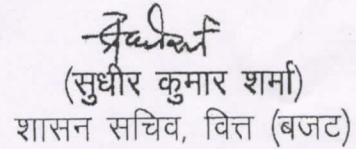 (सुधीर कुमार शर्मा)
शासन सचिव, वित्त (बजट)